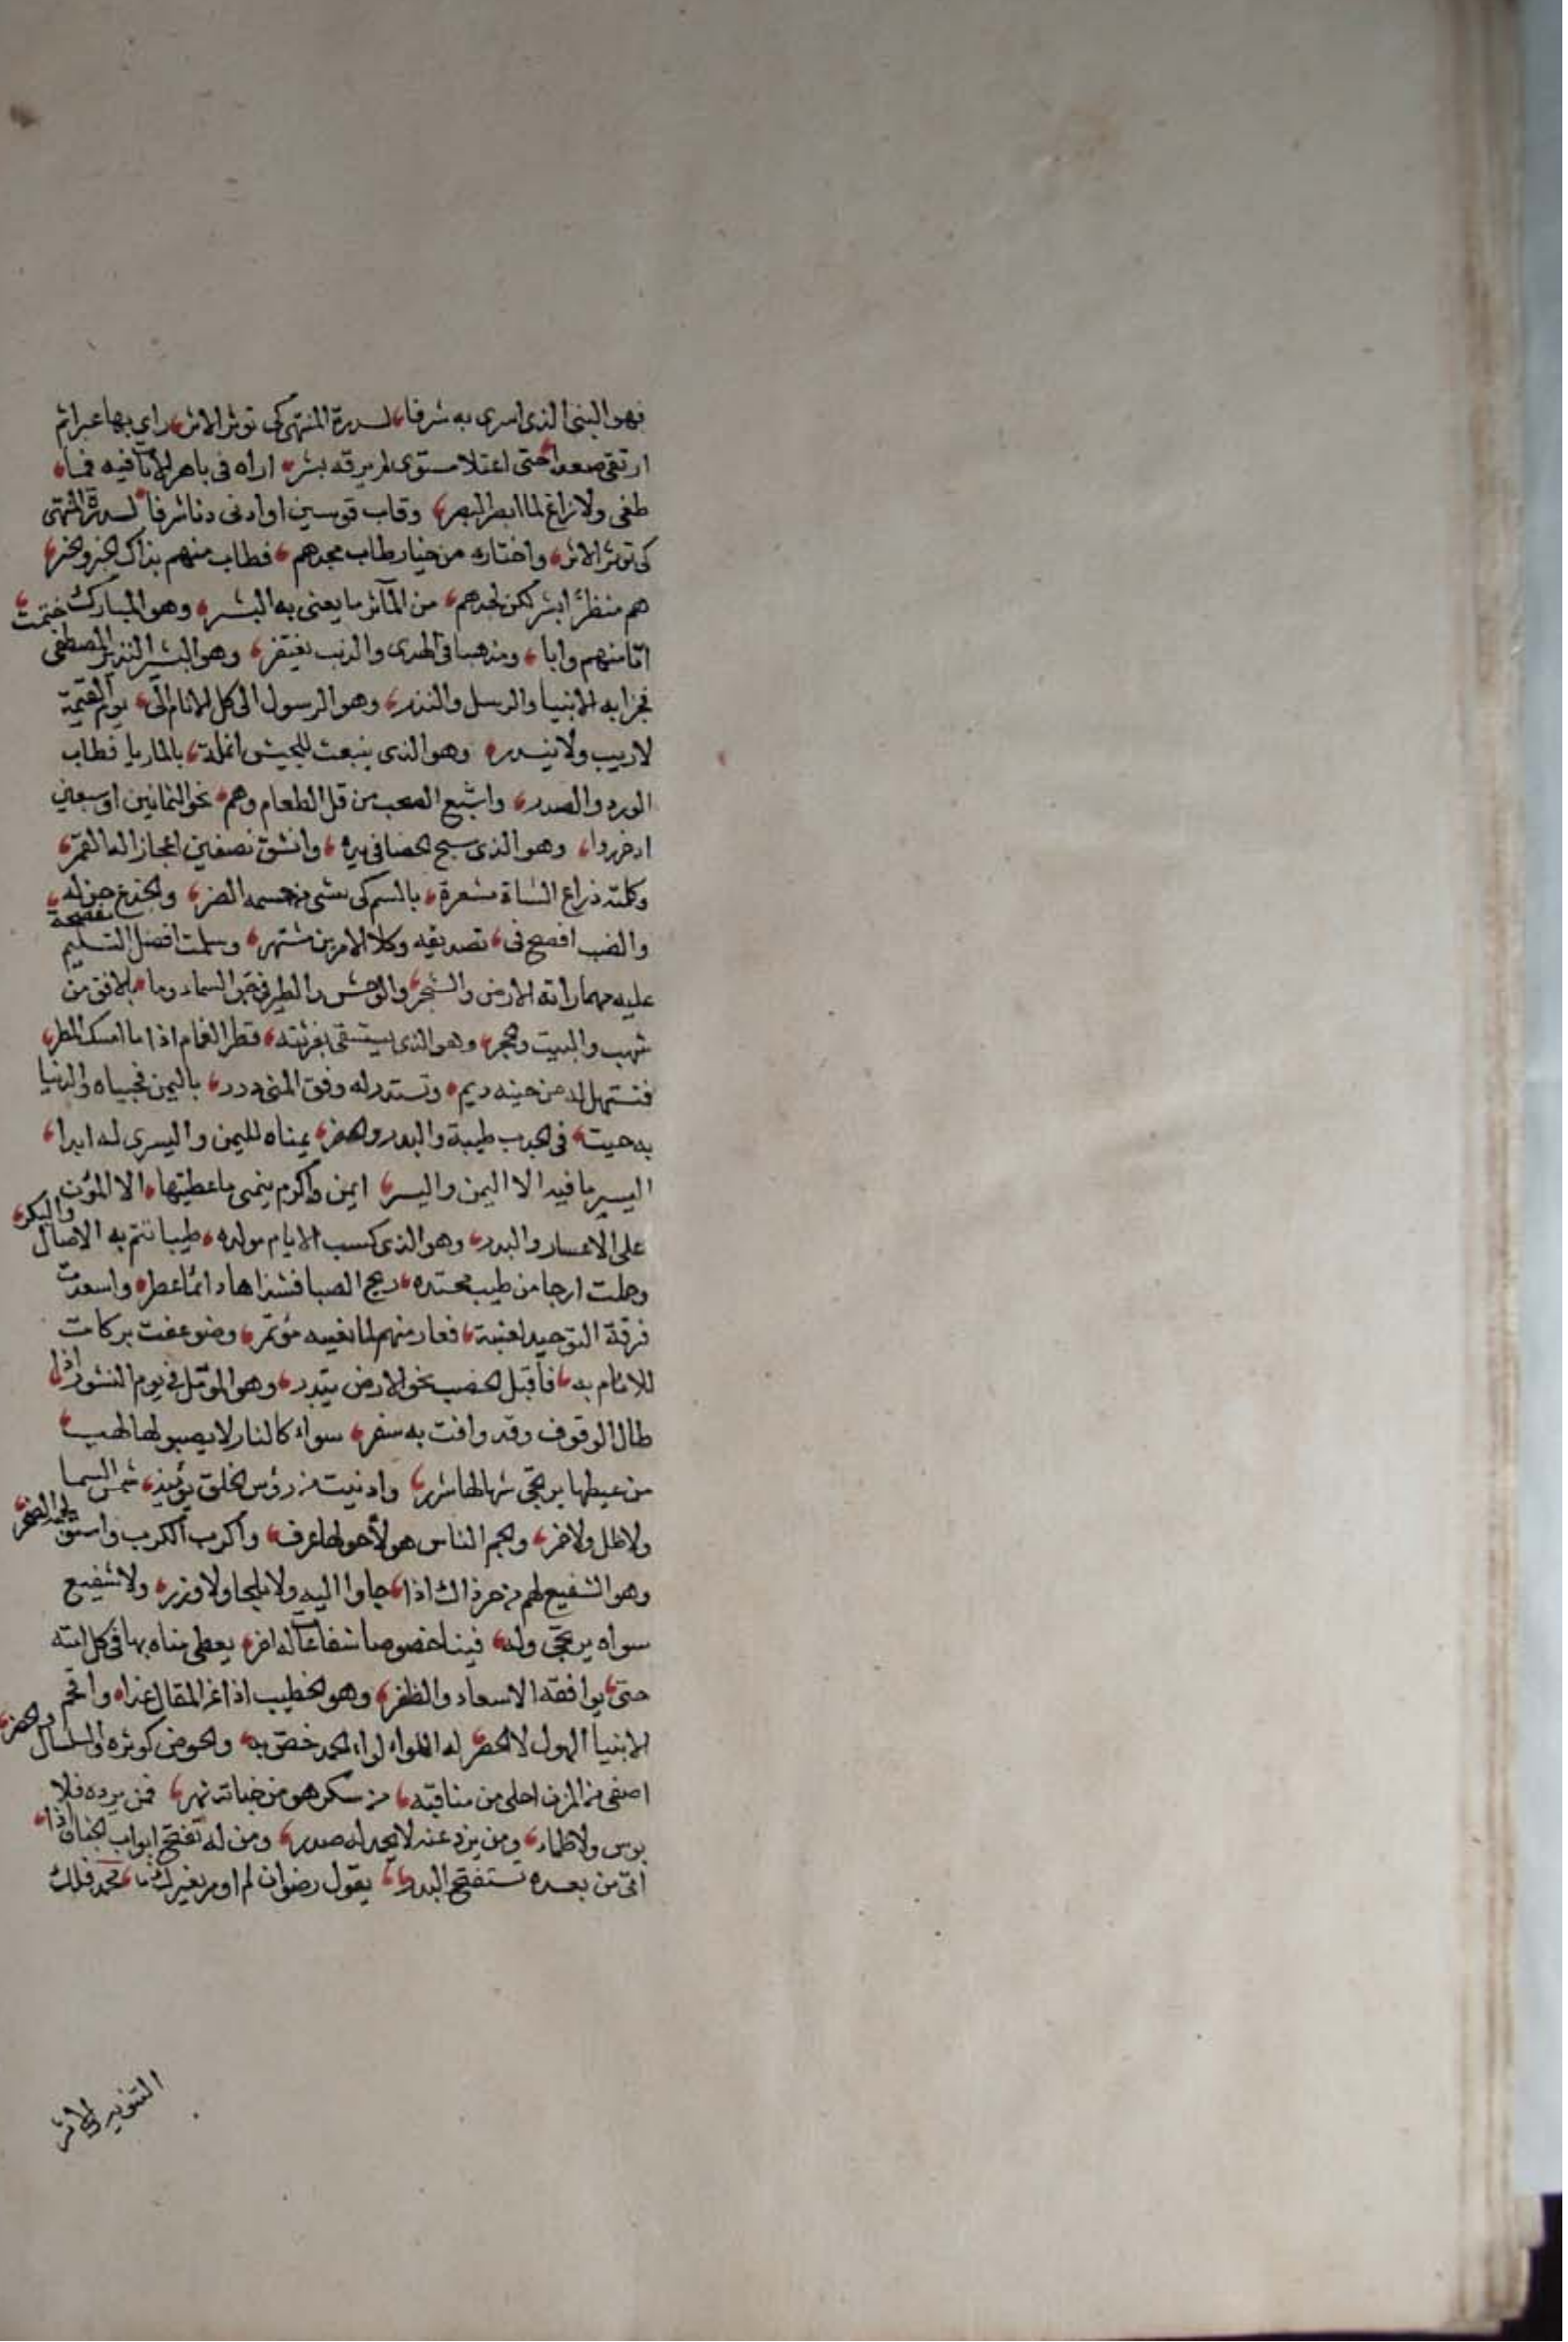 فهو النبي الذي اسري به شرفا لسدرة المنتهى كي توثر الاثر راي بها عبرا ثم
ارتقى صعدا حتى اعتلا مستوى لم يرقه بشر اراه في باهر الآيات فيه فما
طغى ولا زاغ لما ابصر البصر وقاب قوسين او ادنى دنا شرفا لسدرة المنتهى
كي توثر الاثر واختاره من خيار طاب مجدهم فطاب منهم بذاك الخبر والخبر
هم منظر ابشر لكن لمجدهم من المآثر ما يعنى به البشر وهو المبارك ختمت
امّا منهم وابا ومذهبا في الهدى والذنب يغتفر وهو البشير النذير المصطفى
فجزا به الانبيا والرسل والنذر وهو الرسول الى كل الانام الى يوم القيمة
لا ريب ولا نيدره وهو الذي ينبعث للجيش انمله بالما ريا فطاب
الورد والصدر واشبع الصحب من قل الطعام وهم نحو الثمانين او سبعين
اذ حزروا وهو الذي سبح الحصا في يده وانشق نصفين اعجازا لها القمر
وكلمته ذراع الشاة مشعرة بالسم كي يمشي من جسمه الضر والجذع حن له
والضب افصح في تصديقه وكلا الامرين مشتهر وسلمت افضل التسليم مفصحة
عليه مهما راته الارض والشجر والوحش والطير في جو السماء وما بالافق من
شهب والبيت والحجر وهو الذي يستسقى بغرته قطر الغمام اذا ما امسك المطر
فتستهل له من حينه ديم وتستدر له وفق المنى درر باليمن فحياه والدنيا
به حيت في الجدب طيبة والبدو والحضر يمناه لليمن واليسرى له ابدا
اليسير ما فيه الا اليمن واليسر ايمن واكرم بيمنى ما عطيتها الا المؤن
على الاعسار والبدر وهو الذي كسب الايام مولده طيبا تتم به الاصال والبكر
وحملت ارجا من طيب محتده ريح الصبا فشذاها دائما عطر واسعدت
فرقة التوحيد لغيبة فعاد منهم لما نغيبه مؤتمر وضوعفت بركات
للانام به فاقبل الخصب نحو الارض يبتدر وهو المومل في يوم النشور اذا
طال الوقوف وقد وافت به سقر سواء كالنار لا يصبو لها لهب
من غيظها يرتجى شهالها شرر وادنيت من رؤس الخلق يومئذ شمس السما
ولا ظل ولا خمر والجم الناس هولا حولها عرف واكرب الكرب واستولى لها الضجر
وهو الشفيع لهم من حر ذاك اذا جاوا اليه ولا ملجا ولا وزر ولا شفيع
سواه يرتجى وله فينا خصوصا شفاعات له اخر يعطى مناه بها في كل امته
حتى يوافقه الاسعاد والظفر وهو الخطيب اذا عز المقال غدا وافحم
الانبيا الهول لا الحصر له اللواء لواء الحمد خص به والحوض كوثره والسلسال والخصر
اصفى من المزن احلى من مناقبه من سكر هو من جناته نهر فمن يرده فلا
بوس ولا ظماء ومن يزد عنه لا يحمد له صدر ومن له تفتح ابواب الجنان اذا
اتى من بعده تستفتح البدر يقول رضوان لم اومر بغيرك يا محمد فلك
التنوير الاثر